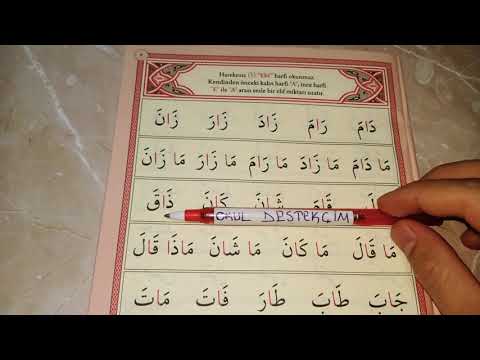 Harekesiz (ا) "Elif" harfi okunmaz
Kendinden önceki kalın harfi 'A', ince harfi
'E' ile 'A' arası sesle bir elif miktarı uzatır.
دَامَ رَامَ زَادَ زَارَ زَانَ
مَا دَامَ مَا زَادَ مَا رَامَ مَا زَارَ مَا زَانَ
قَامَ شَانَ كَانَ ذَاقَ
OKUL DESTEKÇİM
مَا قَالَ مَا كَانَ مَا شَانَ مَاذَا قَالَ
جَابَ طَابَ طَارَ فَاتَ مَاتَ